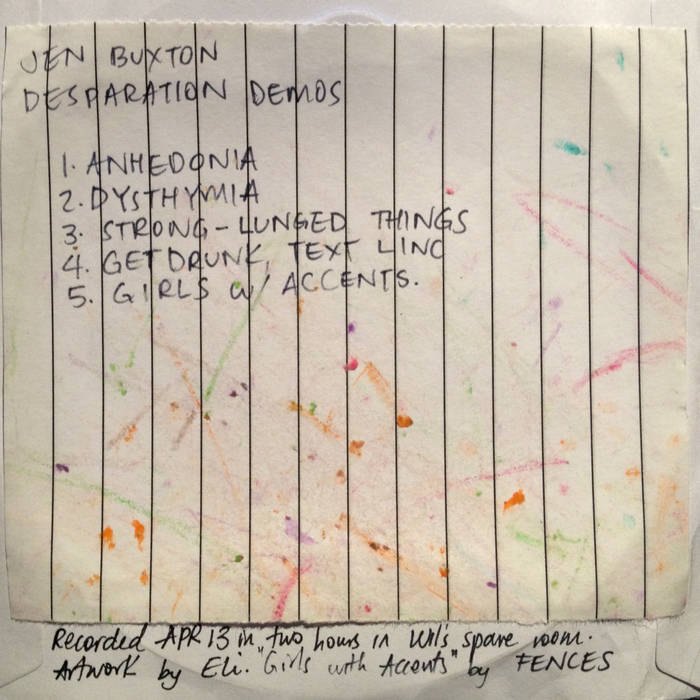 JEN BUXTON
DESPARATION DEMOS
1. ANHEDONIA
2. DYSTHYMIA
3. STRONG-LUNGED THINGS
4. GET DRUNK, TEXT LINC
5. GIRLS W/ ACCENTS.
Recorded APR 13 in two hours in Wil's spare room.
Artwork by Eli. "Girls with Accents" by FENCES